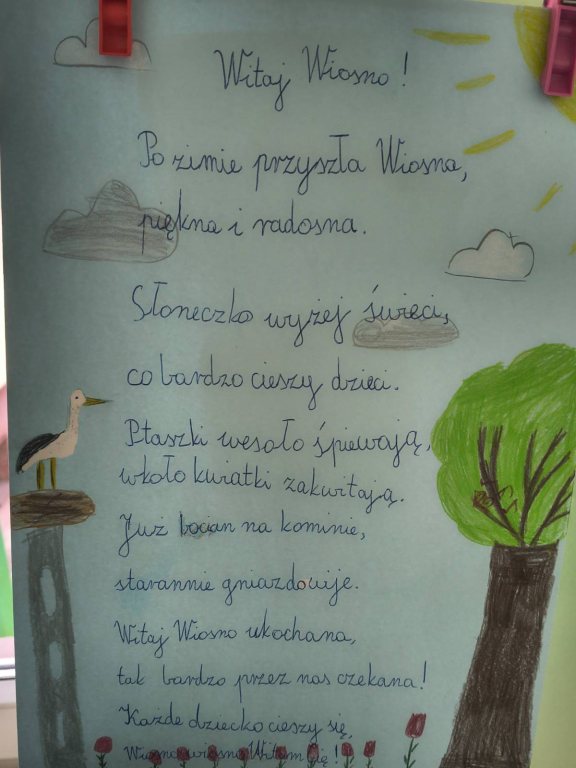 Witaj Wiosno!
Po zimie przyszła Wiosna,
piękna i radosna.
Słoneczko wyżej świeci,
co bardzo cieszy dzieci.
Ptaszki wesoło śpiewają,
wkoło kwiatki zakwitają.
Już bocian na kominie,
starannie gniazdouije.
Witaj Wiosno ukochana,
tak bardzo przez nas czekana!
Każde dziecko cieszy się,
Wiosno wiosno Witam Cię!